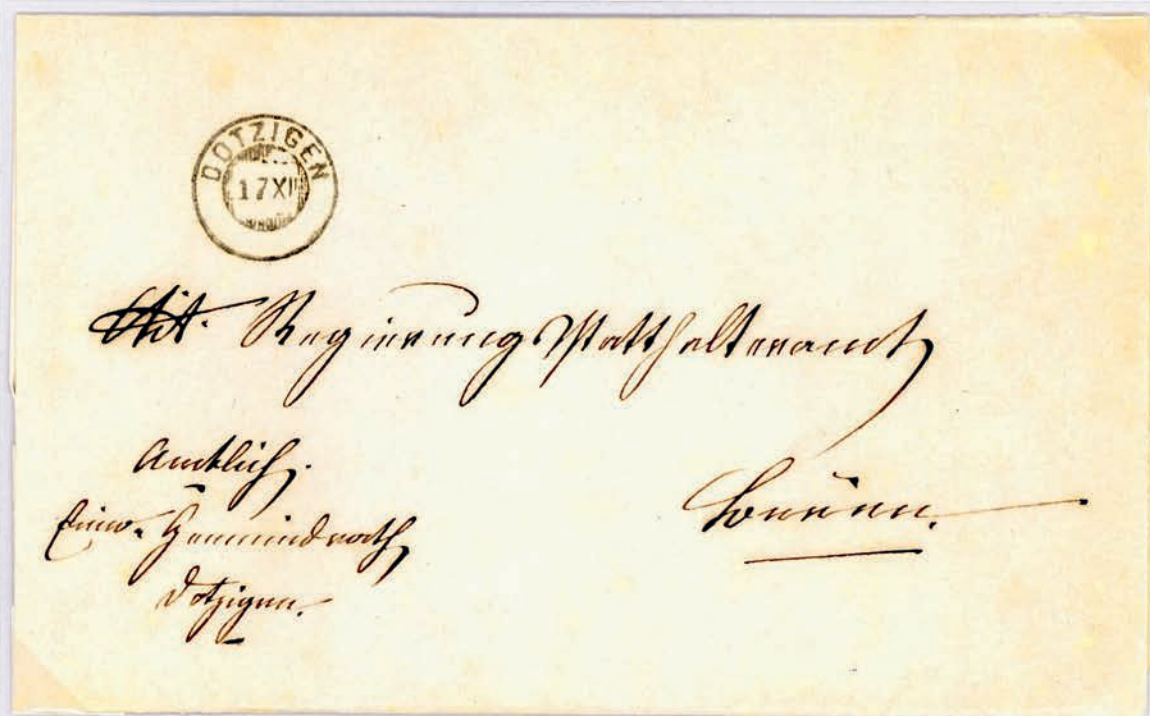 DOTZIGEN
17 XII
Tit. Regierungsstatthalteramt
Amtlich.
Büren.
Einw. Gemeindrath
Dotzigen.